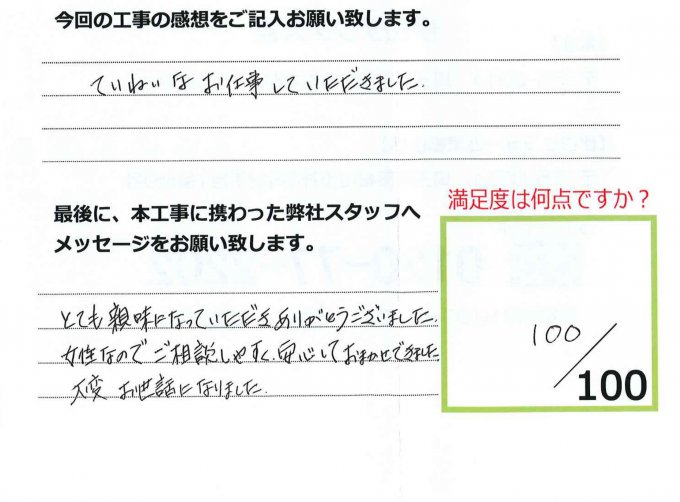 今回の工事の感想をご記入お願い致します。
ていねいな お仕事していただきました.
最後に、本工事に携わった弊社スタッフへ
メッセージをお願い致します。
とても親味になっていただきありがとうございました.
女性なのでご相談しやすく、安心しておまかせできました
大変 お世話になりました.
満足度は何点ですか？
100
/100